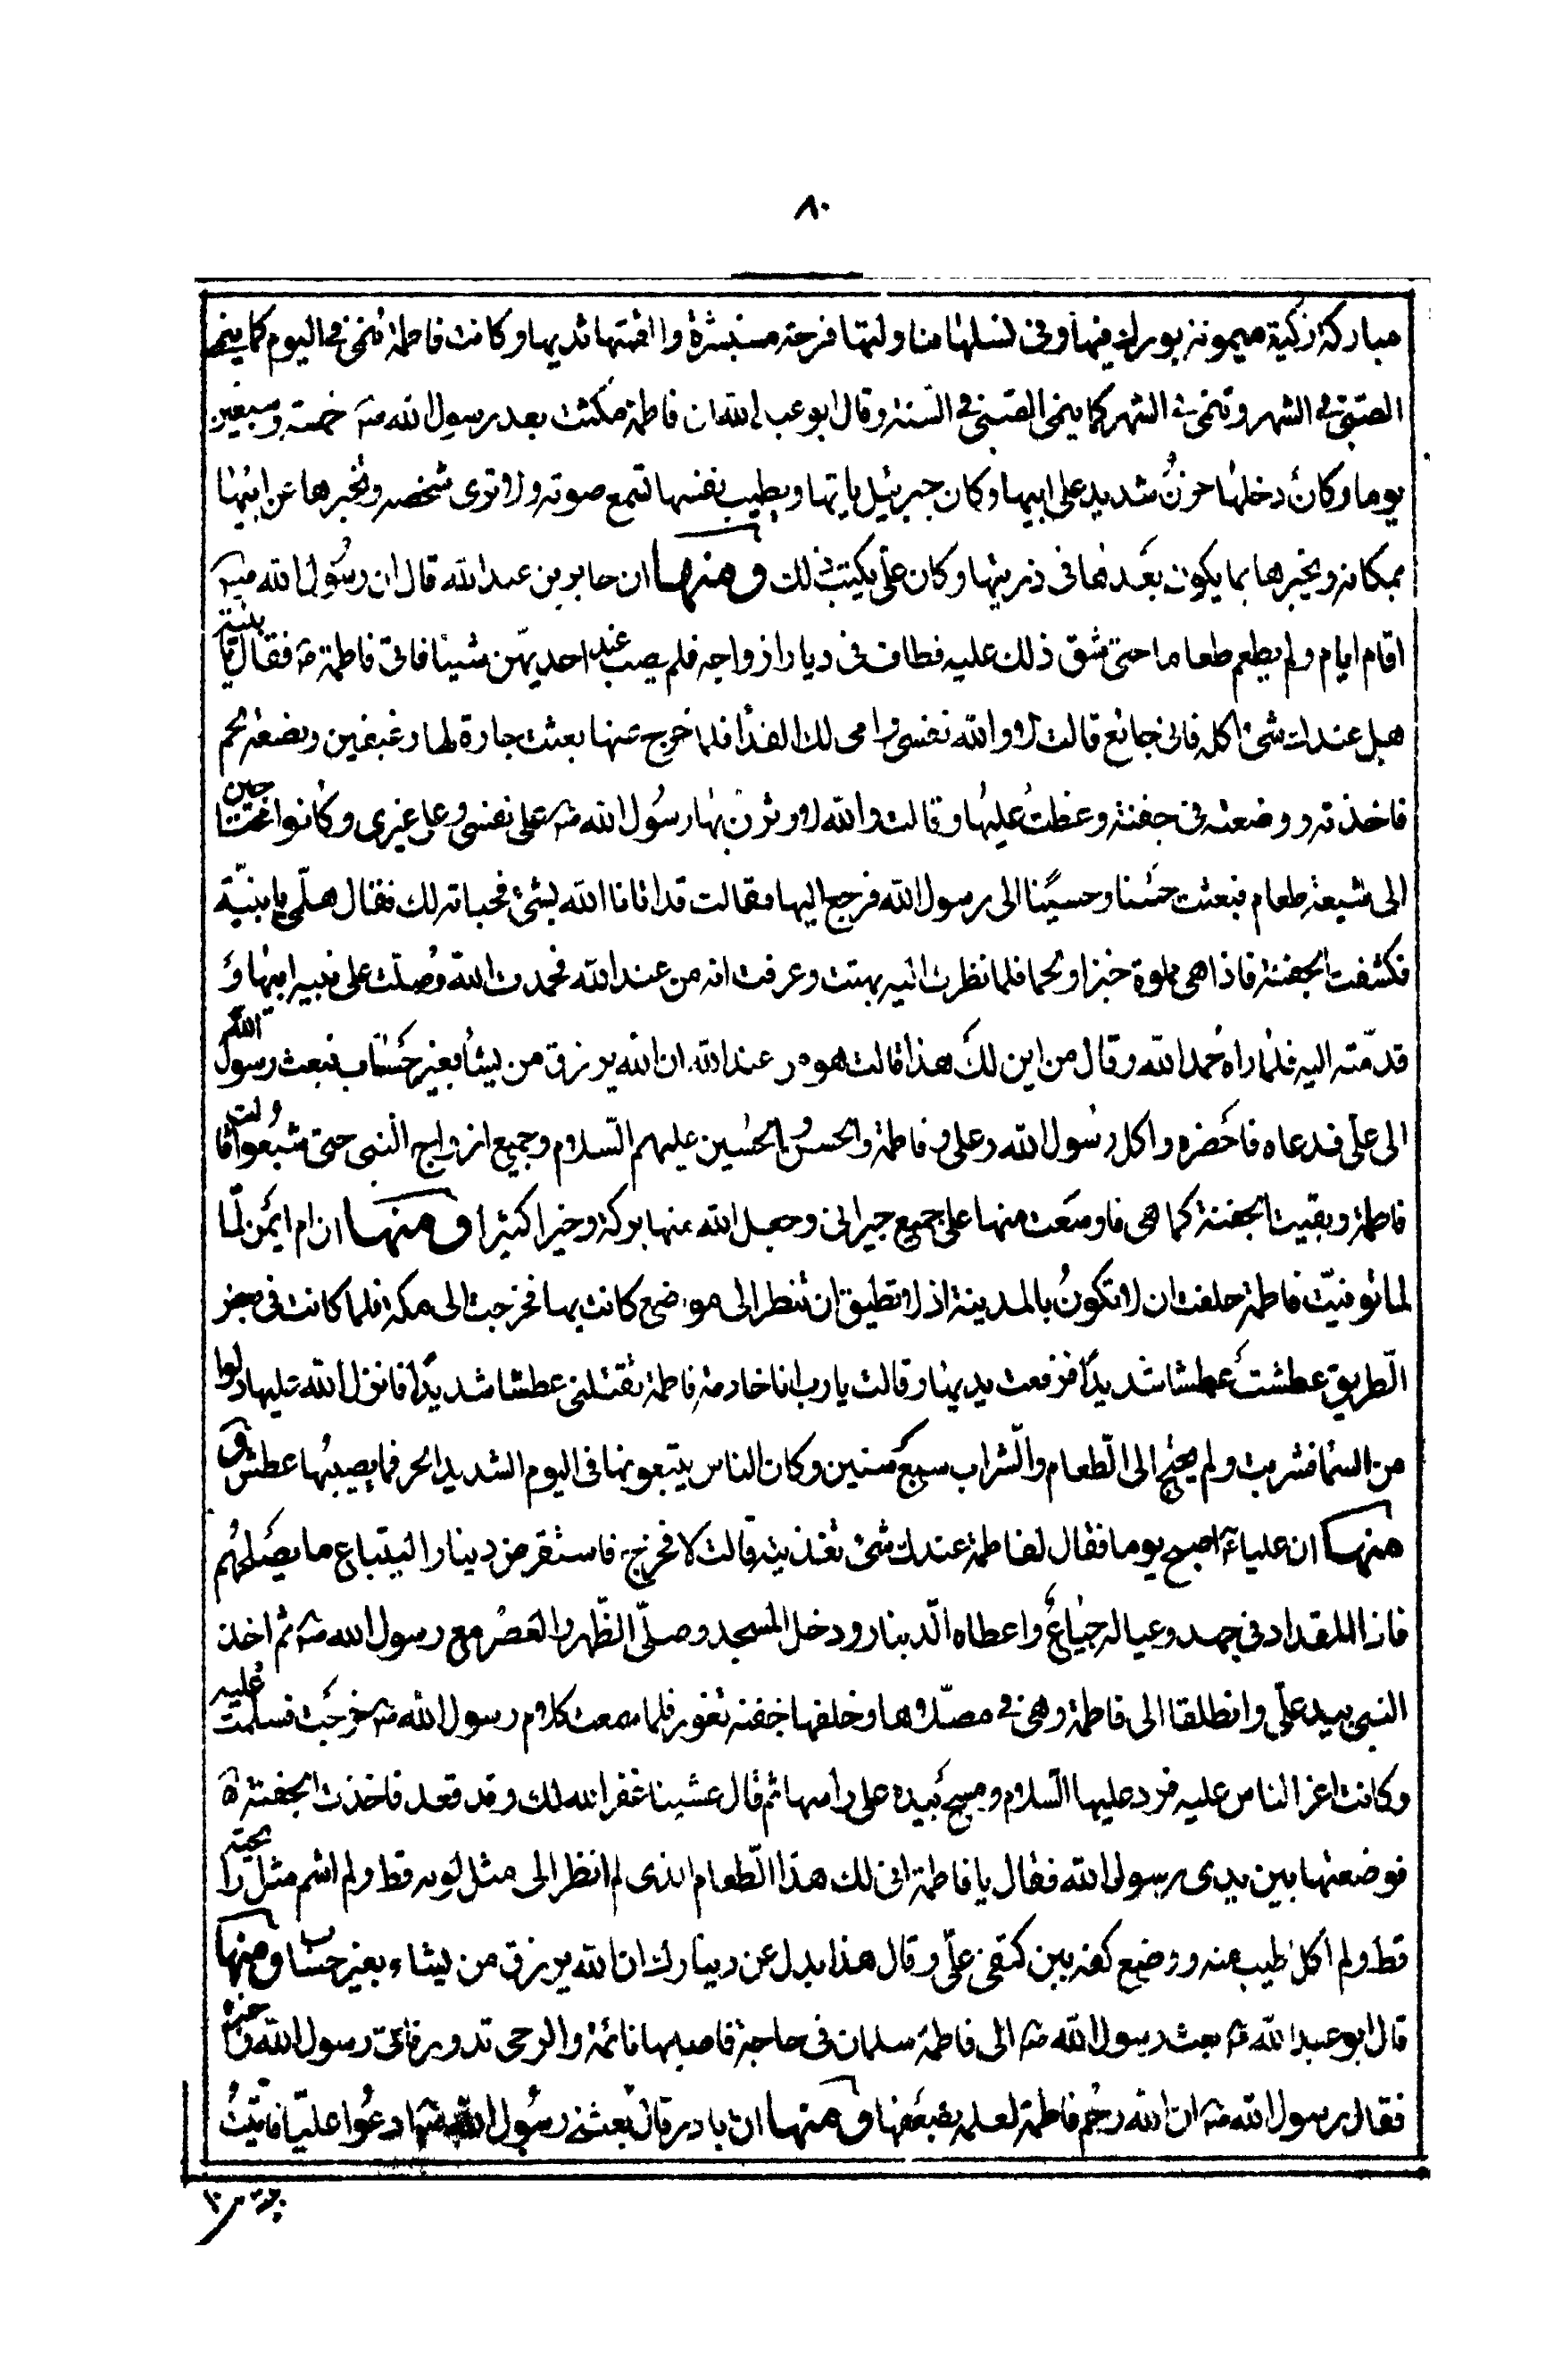 ٨٠
مباركة زكية ميمونة بورك فيها وفى نسلها فناولتها فرحة مستبشرة والقمتها ثديها وكانت فاطمة تنمى فى اليوم كما ينمى
الصبى فى الشهر وتنمى فى الشهر كما ينمى الصبى فى السنة وقال ابو عبد الله ان فاطمة مكثت بعد رسول الله ص خمسة وسبعين
يوما وكان دخلها حزن شديد على ابيها وكان جبرئيل ياتها ويطيب نفسها تسمع صوته ولا ترى شخصه ويخبرها عن ابيها
بمكانه ويخبرها بما يكون بعدها فى ذريتها وكان على يكتب ذلك ومنها ان جابر بن عبد الله قال ان رسول الله ص
اقام ايام ولم يطعم طعاما حتى شق ذلك عليه فطاف فى ديار ازواجه فلم يصب عند احديهن شيئا فاتى فاطمة ع فقال يا بنية
هل عندك شئ اكله فانى جائع قالت لا والله نفسى وامى لك الفدا فلما خرج عنها بعثت جارة لها رغيفين وبضعة لحم
فاخذته ووضعته فى جفنة وغطت عليها وقالت والله لاوثرن بها رسول الله ص على نفسى وعلى غيرى وكانوا محتاجين
الى شبعة طعام فبعثت حسنا وحسينا الى رسول الله فرجع اليها فقالت قد اتانا الله بشئ فخباته لك فقال هلمى يا بنية
فكشفت الجفنة فاذا هى مملوة خبزا ولحما فلما نظرت اليه بهتت وعرفت انه من عند الله فحمدت الله وصلت على نبيه ابيها و
قدمته اليه فلما راه حمد الله وقال من اين لك هذا قالت هو من عند الله ان الله يرزق من يشأ بغير حساب فبعث رسول الله
الى على فدعاه فاحضره واكل رسول الله وعلى وفاطمة والحسن والحسين عليهم السلام وجميع ازواج النبى حتى شبعوا قالت
فاطمة وبقيت الجفنة كما هى فاوسعت منها على جميع جيرانى وجعل الله منها بركة وخيرا كثيرا ومنها ان ام ايمن لما
لما توفيت فاطمة حلفت ان لا تكون بالمدينة اذ لا تطيق ان تنظر الى مواضع كانت بها فخرجت الى مكة فلما كانت فى بعض
الطريق عطشت عطشا شديدا فرفعت يديها وقالت يا رب انا خادمة فاطمة تقتلنى عطشا شديدا فانزل الله عليها دلوا
من السما فشربت ولم يحتج الى الطعام والشراب سبع سنين وكان الناس يبتعونها فى اليوم الشديد الحر فما يصيبها عطش و
منها ان عليا ع اصبح يوما فقال لفاطمة عندك شئ تغذينيه قالت لا فخرج فاستقرض دينارا ليبتاع ما يصلحهم
فاذا المقداد فى جهد وعياله جياع واعطاه الدينار ودخل المسجد وصلى الظهر والعصر مع رسول الله ص ثم اخذ
النبى بيد على وانطلقا الى فاطمة وهى فى مصلاها وخلفها جفنة تفور فلما سمعت كلام رسول الله ص خرجت فسلمت عليه
وكانت اعز الناس عليه فرد عليها السلام ومسح بيده على راسها ثم قال عشينا غفر الله لك وقد قعد فاخذت الجفنة
فوضعتها بين يدى رسول الله فقال يا فاطمة انى لك هذا الطعام الذى لم انظر الى مثل لونه قط ولم اشم مثل رائحته
قط ولم اكل اطيب منه ووضع كفه بين كتفى على وقال هذا بدل عن دينارك ان الله يرزق من يشاء بغير حساب ومنها
قال ابو عبد الله ع بعث رسول الله ص الى فاطمة سلمان فى حاجة فاصابها نائمة والرحى تدور فاتى رسول الله فاخبره
فقال رسول الله ص ان الله رحم فاطمة لعلمه بضعفها ومنها ان باذر قال بعثنى رسول الله ص ادعوا عليا فاتيت